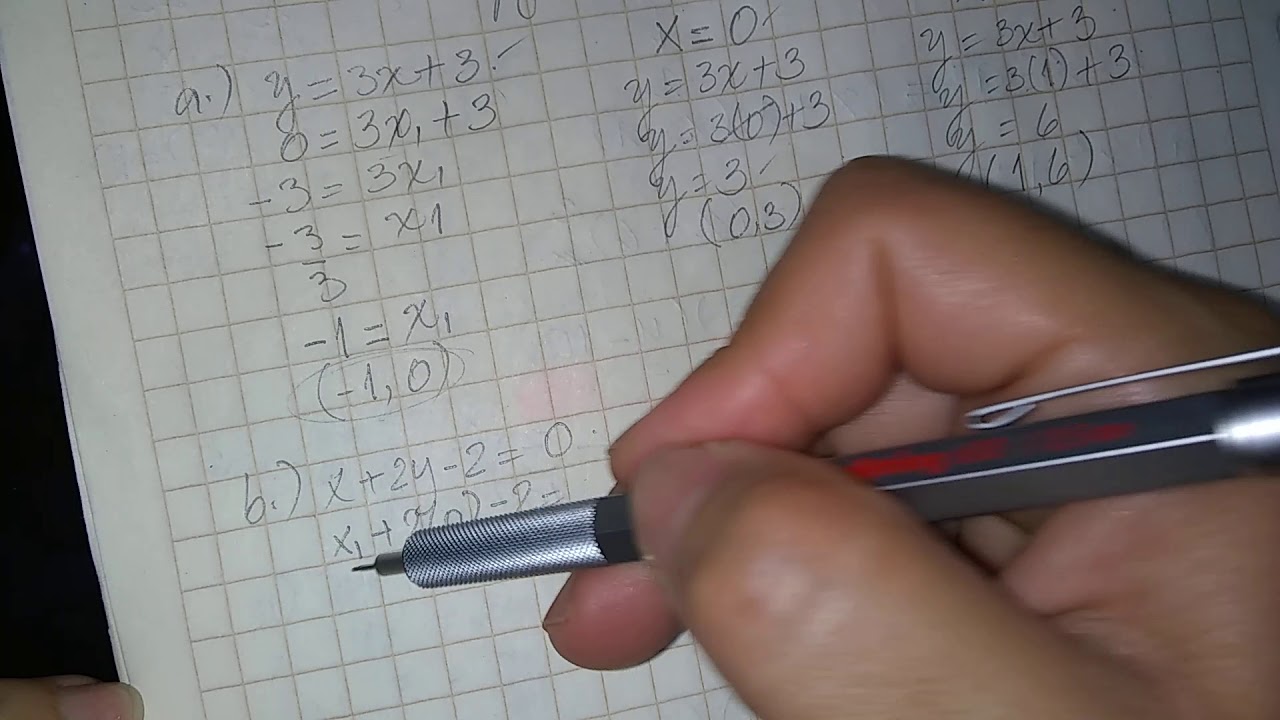 a.) y = 3x + 3
0 = 3x₁ + 3
-3 = 3x₁
-3/3 = x1
-1 = x₁
(-1, 0)
x = 0
y = 3x + 3
y = 3(0) + 3
y = 3
(0,3)
y = 3x + 3
y = 3(1) + 3
y = 6
(1,6)
b.) x + 2y - 2 = 0
x₁ + 2(0) - 2 =